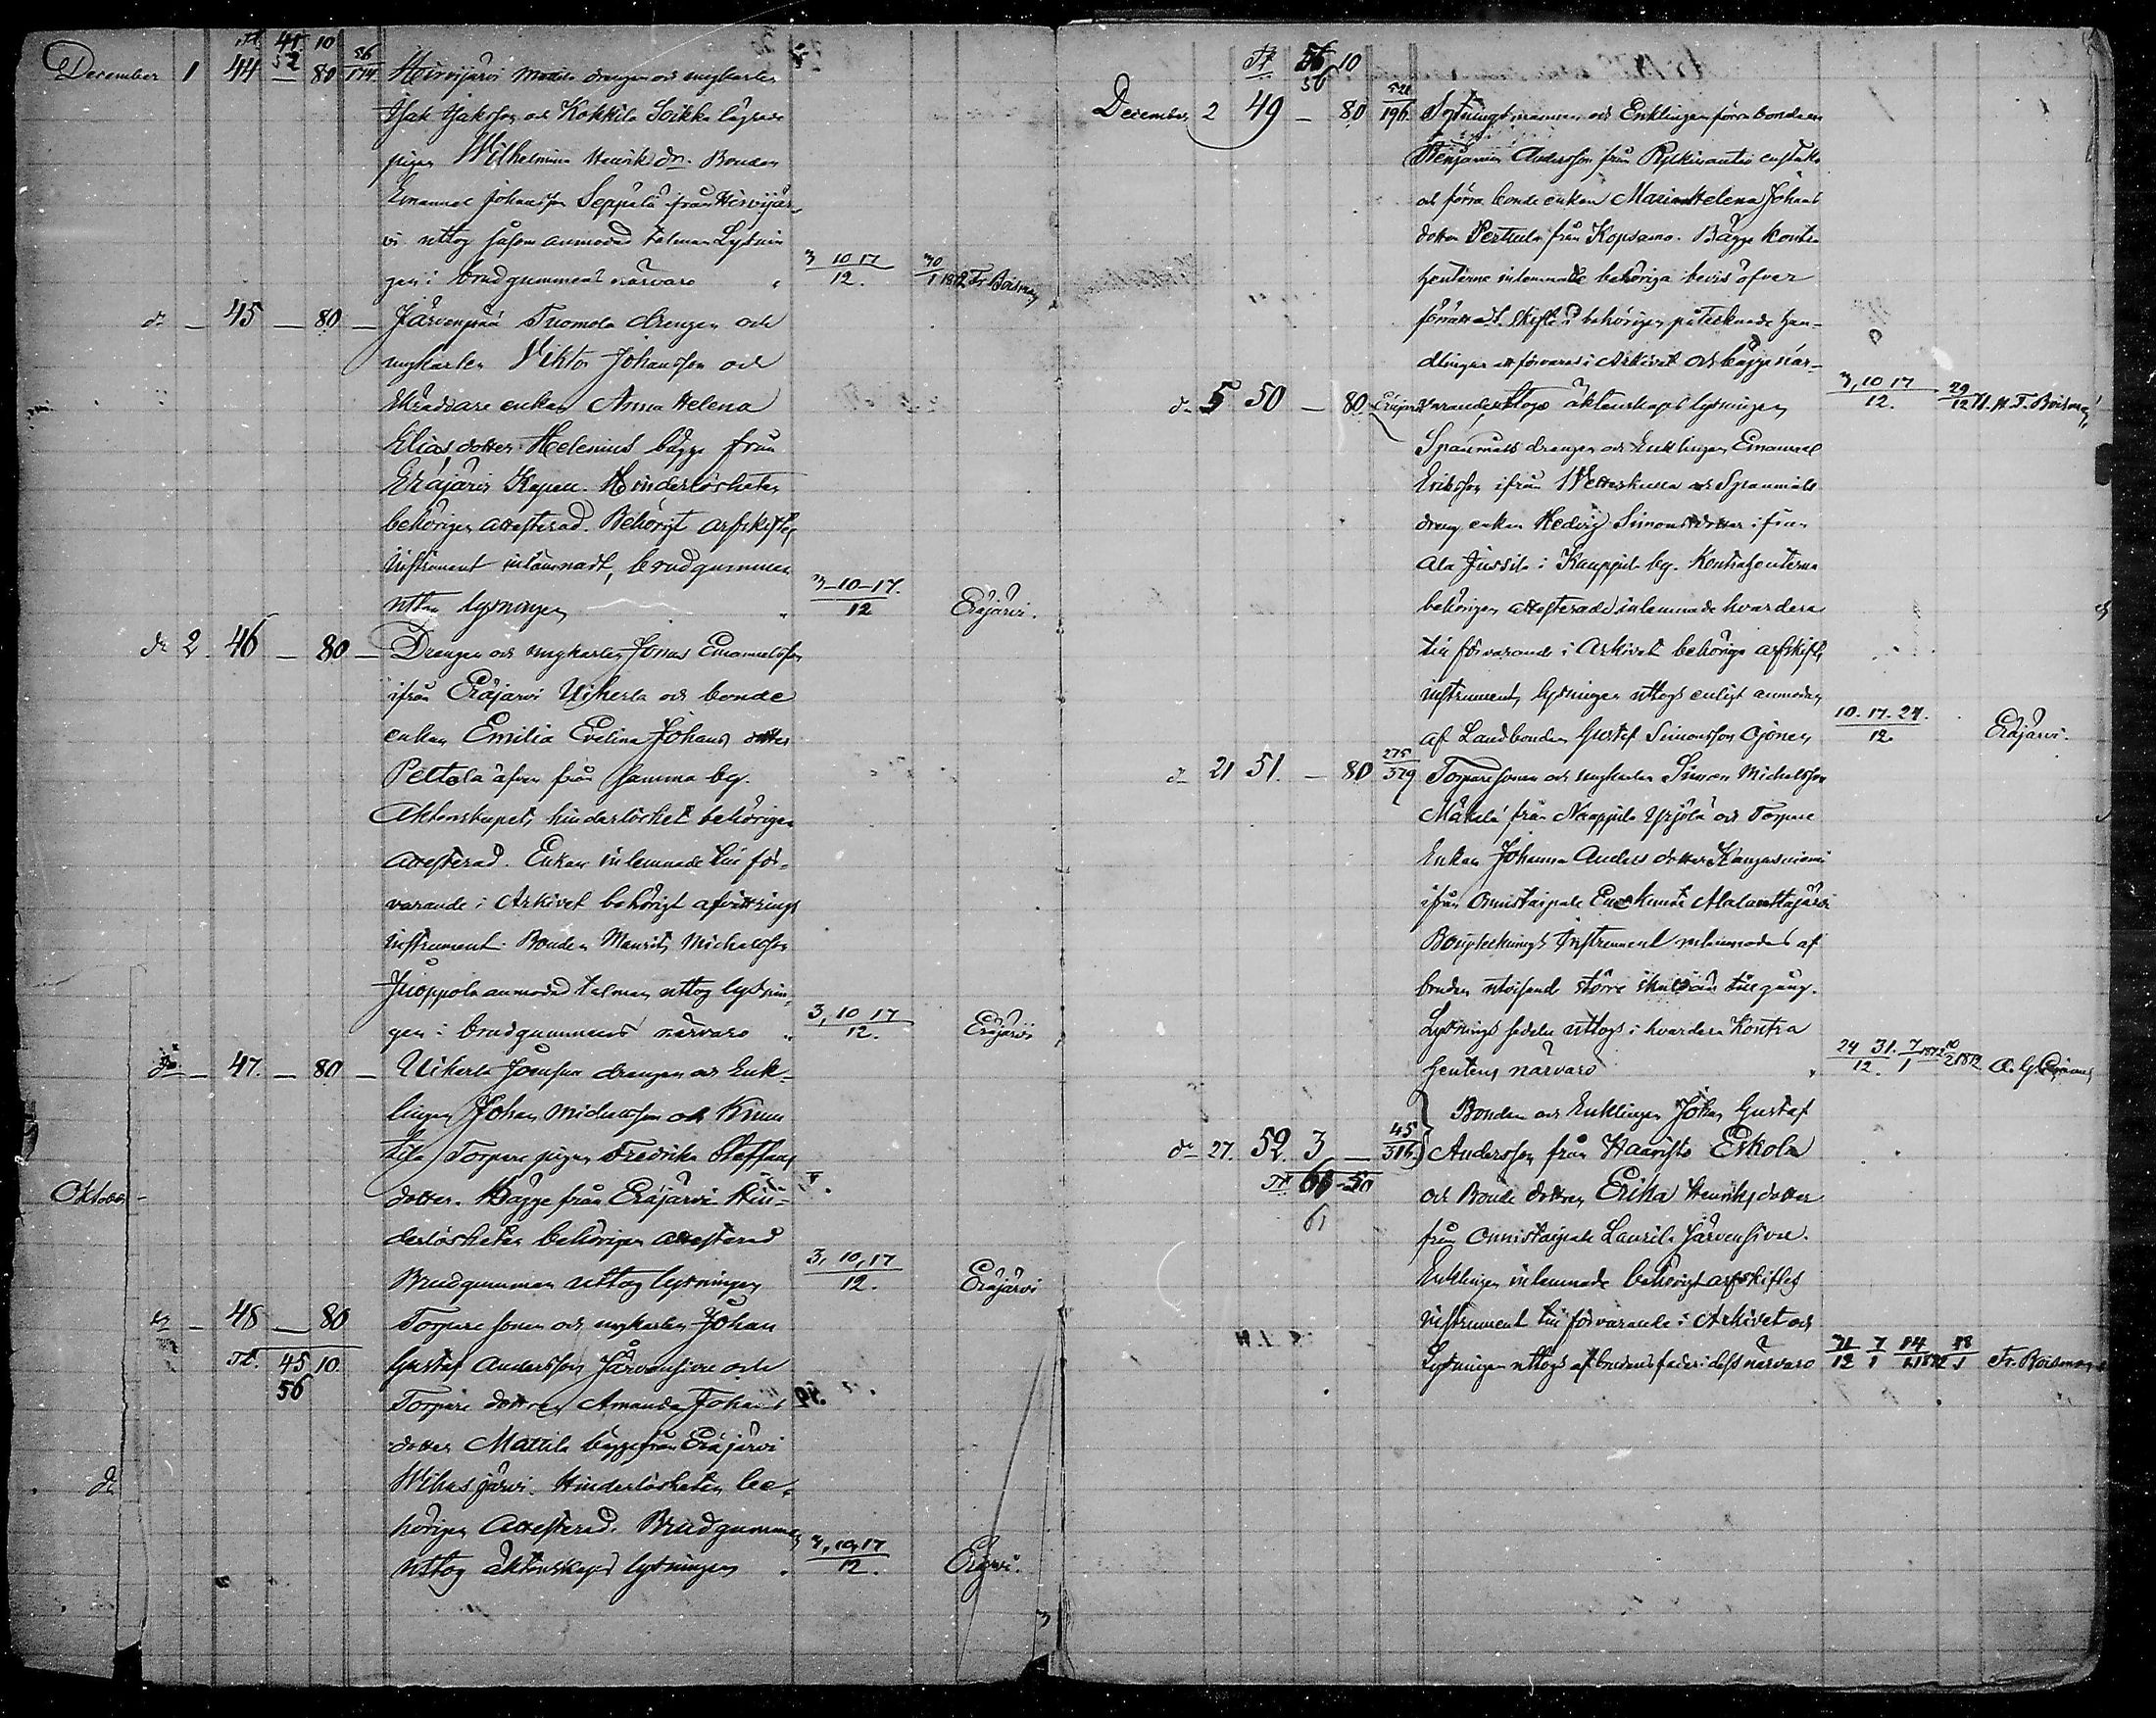 Tr 41 10
52
December 1 44 — 80 56/174 Hirvijärvi Mattila drengen och ungkarlen
Isak Isaksson och Kokkila Soikka lägreds
pigan Wilhelmina Henriks dr. Bonden
Emanuel Johansson Seppälä från Hirvijär-
vi uttog såsom anmodad talman Lysnin
gen i brudgummens närvaro 3 10 17/12. 30/1 1872 Fr. Boisman
do — 45 — 80 — Järvenpää Tuomola drengen och
ungkarlen Viktor Johansson och
Skräddare enkan Anna Helena
Elias dotter Helenius bägge från
Eräjärvi Kapell. Hinderlösheten
behörigen attesterad. Behörigt arfskiftes
instrument inlämnadt, brudgummen
uttog lysningen 3-10-17./12 Eräjärvi.
do 2. 46 — 80 — Drengen och ungkarlen Jonas Emanuelsson
ifrån Eräjärvi Uiherla och bonde
enkan Emilia Evelina Johans dotter
Peltola äfven från samma by.
Äktenskapets hinderlöshet behörigen
attesterad. Enkan inlemnade till för-
varande i Arkivet behörigt afvittrings
instrument. Bonden Maurits Michelsson
Juoppola anmodad talman uttog lysnin
gen i brudgummens närvaro 3, 10 17/12. Eräjärvi
do — 47. — 80 — Uiherla Jounsua drengen och Enk-
lingen Johan Michelsson och
Torpare pigan Fredrika Staffans
Oktober — dotter. Bägge från Eräjärvi Hin-
derlösheten behörigen attesterad
Brudgummen uttog lysningen 3, 10, 17/12. Eräjärvi
do — 48 — 80 Torpare sonen och ungkarlen Johan
Tr. 45 10. Gustaf Andersson Järvensivu och
56 Torpare dottren Amanda Johans
dotter Mattila bägge från Eräjärvi
do Wihasjärvi. Hinderlösheten be-
hörigen Attesterad. Brudgummen
uttog äktenskaps lysningen 3, 10, 17/12. Eräjärvi.
Tr 56 10
56
December 2 49 — 80 521/196 Sytningsmannen och Enklingen förra bonden
Benjamin Andersson från
och förra bonde enkan Maria Helena Johans
dotter Perttula från Kopsamo. Bägge kontra
henterne inlemnade behöriga bevis öfver
förrättadt skifte å behörigen påtecknade han-
dlingar att förvaras i Arkivet och bägge när-
do 5 50 — 80 Eräjärvi varande uttogo äktenskaps lysningen 3, 10 17/12. 29/12 71. Fr. Boisman
Spanmåls drengen och Enklingen Emanuel
Eriksson ifrån och Spanmåls
dreng enkan Hedvig Simonsdotter ifrån
Ala Jussila i Kauppila by. Kontrahenterna
behörigen attesterade inlemnade hvardera
till förvarande i Arkivet behörige arfskiftes
instrument, lysningen uttogs enligt anmodan
af Landbonden Gustaf Simonsson Ojonen 10. 17. 24./12. Eräjärvi.
do 21 51. — 80 275/579 Torparesonen och ungkarlen Simon Michelsson
Mäkelä från Naappila Yrjölä och Torpare
Enkan Johanna Anders dotter Kangasniemi
ifrån Onnistaipale
Bouppteckningsinstrument inlemnades af
bruden utvisande större skuld än tillgång.
Lysnings sedeln uttogs i hvardera Kontra
hentens närvaro 24 31./12. 7/1 1872 10/2 1872
Bonden och Enklingen Johan Gustaf
do 27. 52. 3 — 45/316. Andersson från Haavisto Eskola
Tr 60 50 och Bonde dottren Erika Henriksdotter
61 från Onnistaipale Laurila Järvensivu.
Enklingen inlemnade behörigt arfskiftes
instrument till förvarande i Arkivet och
Lysningen uttogs af brudens fader i dess närvaro 31/12 7/1 14/1 1872 Fr. Boisman